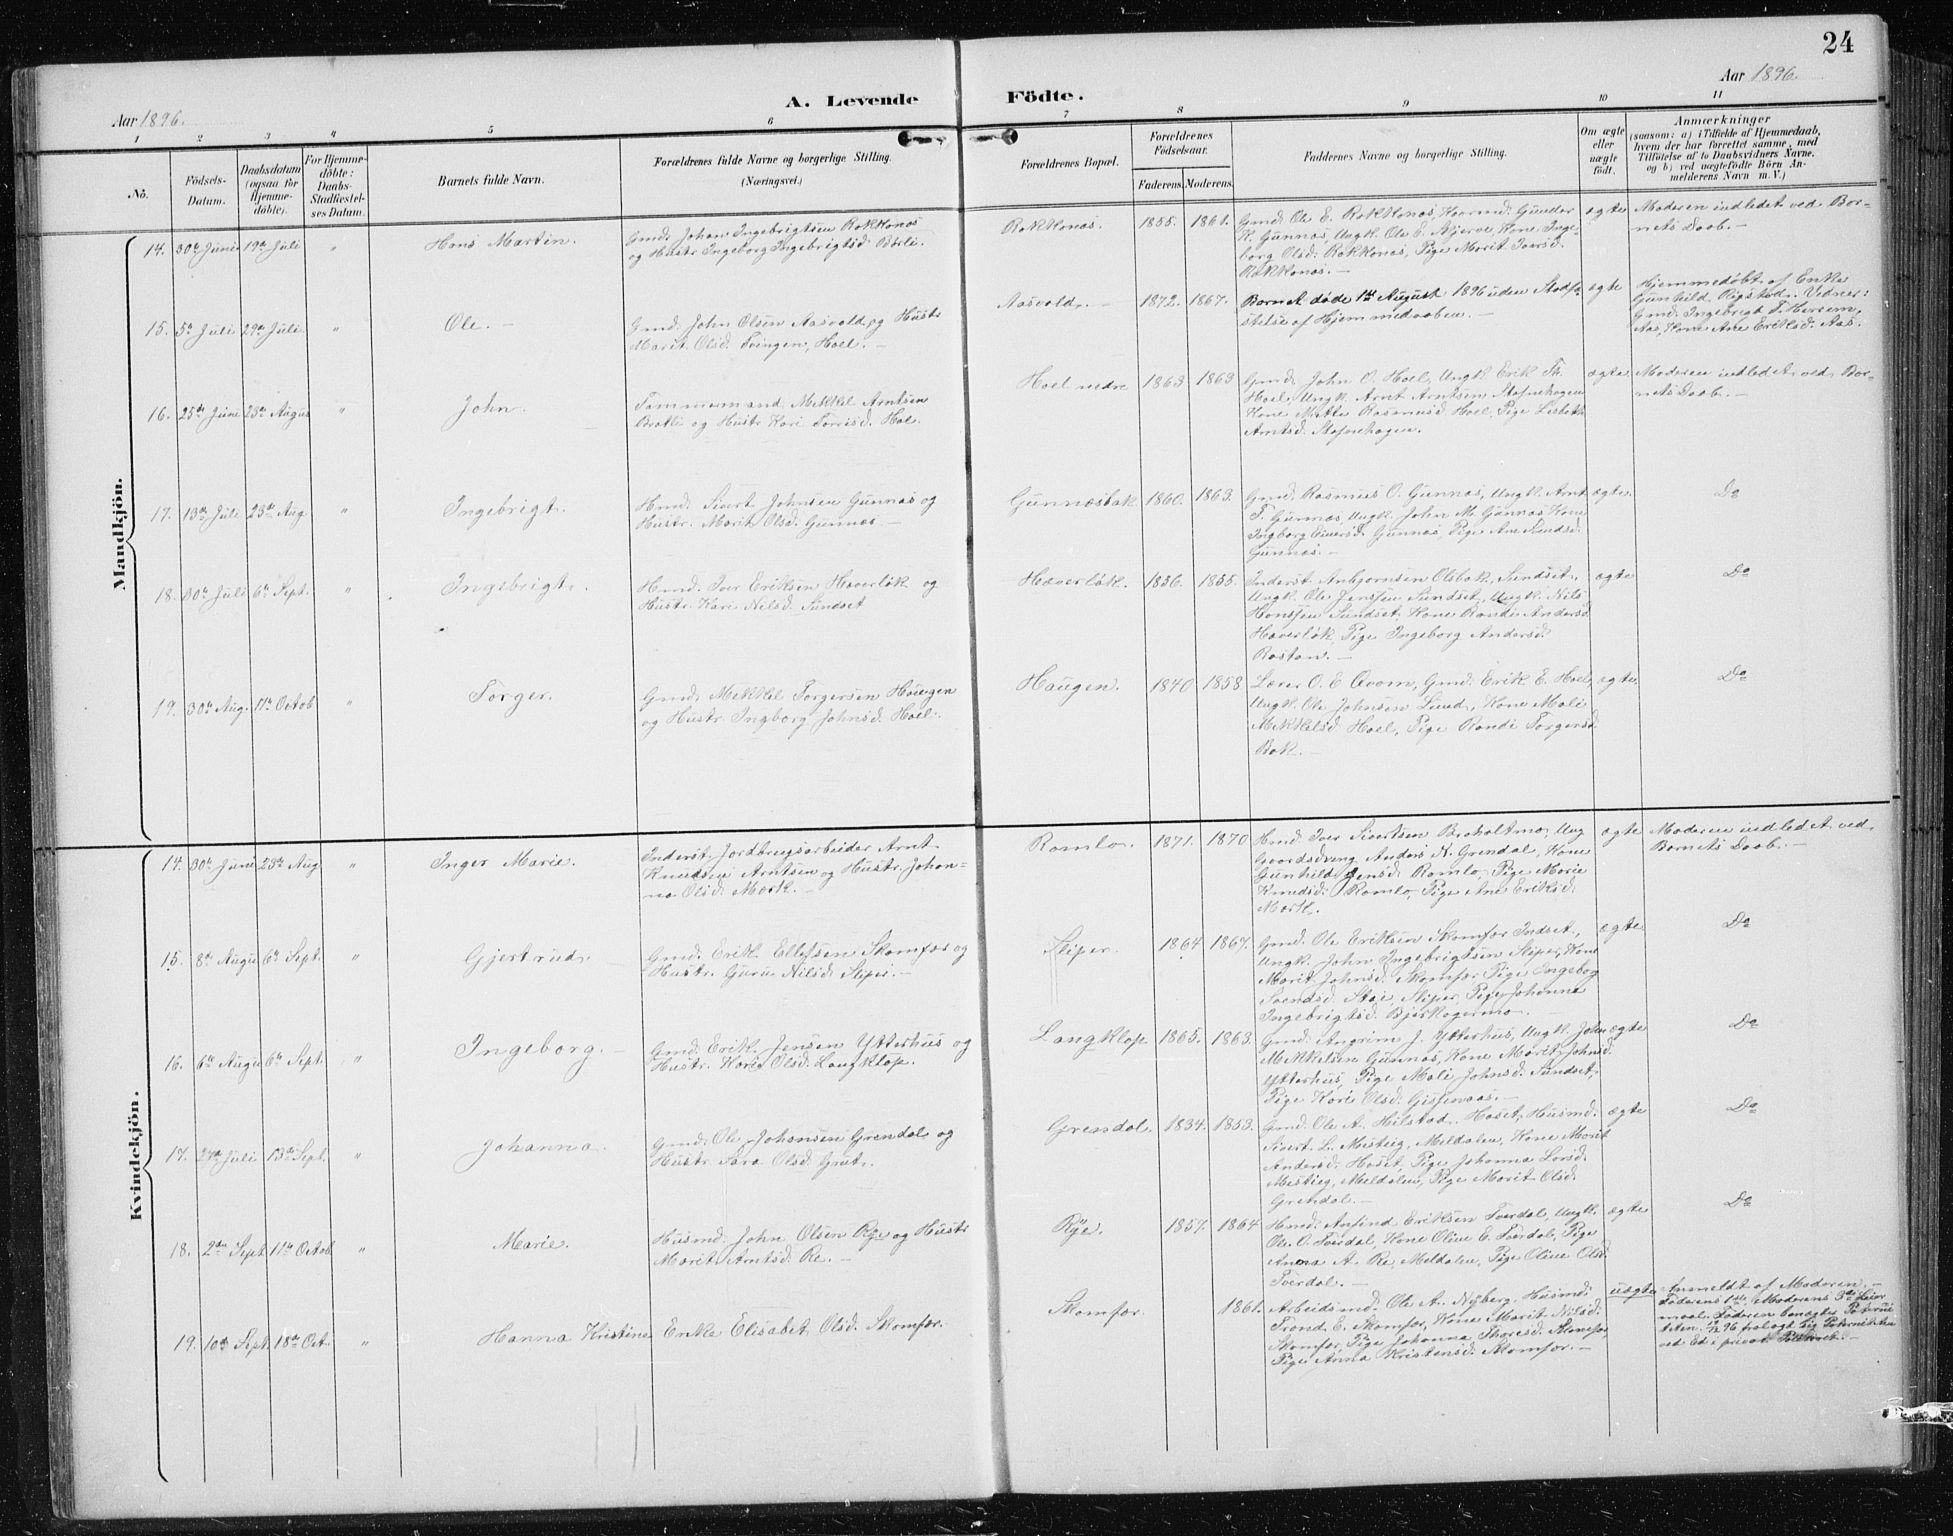 24
Aar 1896.
Aar 1896.
A. Levende Födte.
1 2 3 4 5 6 7 8 9 10 11
No.
Födsels-Datum.
Daabsdatum (ogsaa for Hjemmedöbte).
For Hjemmedöbte: Daabs-Stadfæstelses Datum.
Barnets fulde Navn.
Forældrenes fulde Navne og borgerlige Stilling. (Næringsvei.)
Forældrenes Bopæl.
Forældrenes Födselsaar.
Faderens. Moderens.
Faddernes Navne og borgerlige Stilling.
Om ægte eller uægte födt.
Anmærkninger
(saasom: a) i Tilfælde af Hjemmedaab, hvem der har forrettet samme, med Tilföielse af to Daabsvidners Navne, og b) ved uægtefödte Börn Anmelderens Navn m. V.)
Mandkjön.
14. 30te Juni 19de Juli " Hans Martin.
Gmd. Johan Ingebrigtsen Rokkones
og Hustr. Ingeborg Ingebrigtsd. Børli.
Rokkones. 1855. 1861.
Gmd. Ole E. Rokkones, Gunder
K. Gunnæs, Ungk. Ole E. Kone Inge-
borg Olsd. Rokkones, Pige Marit Iversd.
Rokkones. —
ægte
Moderen indledet ved Bar-
nets Daab. —
15. 5te Juli 29de Juli " Ole. —
Gmd. John Olsen Aasvold og Hustr.
Marit Olsd. Hoel. —
Aasvold. — 1872. 1867.
Barnet døde 1ste August 1896 uden Stadfæ-
stelse af Hjemmedaaben. —
ægte
Hjemmedøbt af Enke
Gunhild Rigstad. Vidner:
Gmd. Ingebrigt T. Hersem,
Aas, Kone Ane Eriksd. Aas.
16. 25de Juni 23de August " John.
Tømmermand Mikkel Arntsen
Bratli og Hustr. Kari Torrisd. Hoel.
Hoel nedre 1863 1863
Gmd. John O. Hoel, Ungk. Erik
Hoel, Ungk. Arnt Arntsen
Kone Mette Rasmusd. Hoel, Pige Lisbeth
Arntsd.
ægte
Moderen indledet ved Bar-
nets Daab. —
17. 13de Juli 23de Aug. " Ingebrigt.
Hmd. Sivert Johnsen Gunnæs og
Hustr. Marit Olsd. Gunnæs. —
Gunnæsbak 1860. 1863.
Gmd. Rasmus O. Gunnæs, Ungk. Arnt
T. Gunnæs, Ungk. John M. Gunnæs, Kone
Ingborg Gunnæs, Pige Ane
Gunnæs. —
ægte. Do
18. 30te Juli 6te Sept. " Ingebrigt.
Hmd. Iver Eriksen Haverløk og
Hustr. Kari Nilsd. Sundset
Haverløk. 1856. 1855.
Inderst Anbjørnsen Olsbak, Sundset,
Ungk. Ole Jenssen Sundset, Ungk. Nils
Hanssen Sundset, Kone Randi Andersd.
Haverløk, Pige Ingeborg Andersd.
ægte Do
19. 30te Aug. 11te Octob. " Torger.
Gmd. Mikkel Torgersen Haugen
og Hustr. Ingborg Johnsd. Hoel.
Haugen. 1840 1858
Lærer O. E. Gmd. Erik E. Hoel,
Ungk. Ole Johnsen Lund, Kone Mali
Mikkelsd. Hoel, Pige Randi Torgersd.
Bak. —
ægte. Do
Kvindekjön.
14. 30te Juni 23de Aug. " Inger Marie.
Inderst, Jordbrugsarbeider Arnt
Knudsen Arntsen og Hustr. Johan-
na Olsd. Mærk. —
Romlo. 1871. 1870
Hmd. Iver Sivertsen Ung
Anders N. Grendal, Kone
Gunhild Jensd. Romlo, Pige Marie
Knudsd. Romlo, Pige Ane Eriksd.
Mærk.
ægte
Moderen indledet ved
Barnets Daab. —
15. 8de Augu 6te Sept. " Gjertrud.
Gmd. Erik Ellefsen Skamfær og
Hustr. Guru Nilsd. Sliper. —
Sliper. 1864 1867.
Gmd. Ole Eriksen Skamfær, Indset,
Ungk. John Ingebrigtsen Sliper, Kone
Marit Johnsd. Skamfær, Pige Ingeborg
Svendsd. Sliper, Pige Johanna
Ingebrigtsd.
ægte Do
16. 6te Augu 6te Sept. " Ingeborg. —
Gmd. Erik Jensen Ytterhus og
Hustr. Kari Olsd. Langklop.
Langklop. 1865. 1863.
Gmd. Angrim J. Ytterhus, Ungk. John
Mikkelsen Gunnæs, Kone Marit Johnsd.
Ytterhus, Pige Mali Johnsd. Sundset,
Pige Kari Olsd.
ægte Do
17. 27de Juli 13de Sept. " Johanna.
Gmd. Ole Johansen Grendal og
Hustr. Sara Olsd. Grut.
Grendal. 1834. 1853.
Gmd. Ole A. Hilstad, Hoset, Husmd.
Sivert L. Mestieg, Meldalen, Kone Marit
Andersd. Hoset, Pige Johanna Larsd.
Mestieg, Meldalen, Pige Marit Olsd.
Grendal. —
ægte Do
18. 2den Sept 11te Octob. " Marie.
Husmd. John Olsen Rye og Hustr.
Marit Arntsd. Re. —
Rye. 1857. 1864
Hmd. Anfind Eriksen Tverdal, Ungk.
Ole O. Tverdal, Kone Oline E. Tverdal, Pige
Anna A. Re, Meldalen, Pige Oline Olsd.
Tverdal. —
ægte Do
19. 10de Sept. 18de Oct. " Hanna Kristine
Enke Elisabet Olsd. Skamfær.
Skamfær. 1861.
Arbeidsmd. Ole A. Nyberg, Husmd.
Trond E. Skamfær, Kone Marit Nilsd.
Skamfær, Pige Johanna Thoresd. Skamfær,
Pige Anna Kristensd. Skamfær. —
uægte
Anmeldt af Moderen. —
Faderens 1ste, Moderens 3die Leier-
maal. Faderen benægter Paterni-
teten.